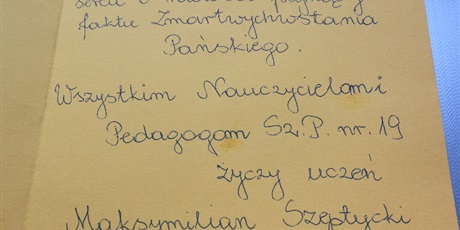 serce i radość płynącą z
faktu Zmartwychwstania
Pańskiego.
Wszystkim Nauczycielom i
Pedagogom Sz.P. nr. 19
życzy uczeń
Maksymilian Szeptycki